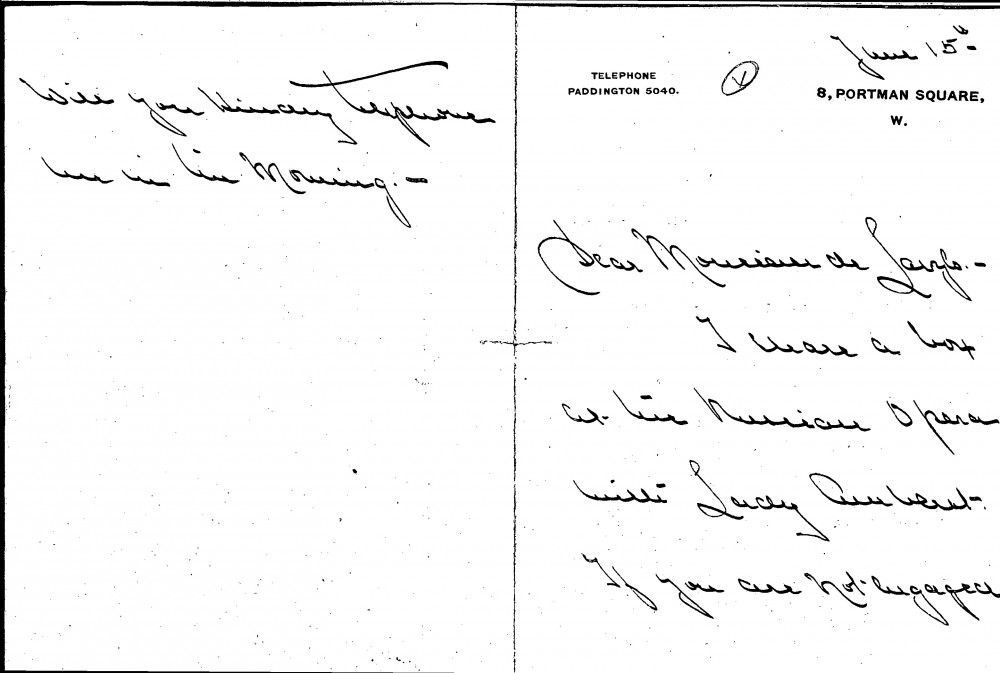 June 15th -
TELEPHONE
PADDINGTON 5040.
8, PORTMAN SQUARE,
W.
Dear Monsieur de Laszlo. -
I have a box
at the Russian Opera
with Lady
If you are not engaged
Will you kindly telephone
me in the Morning. -